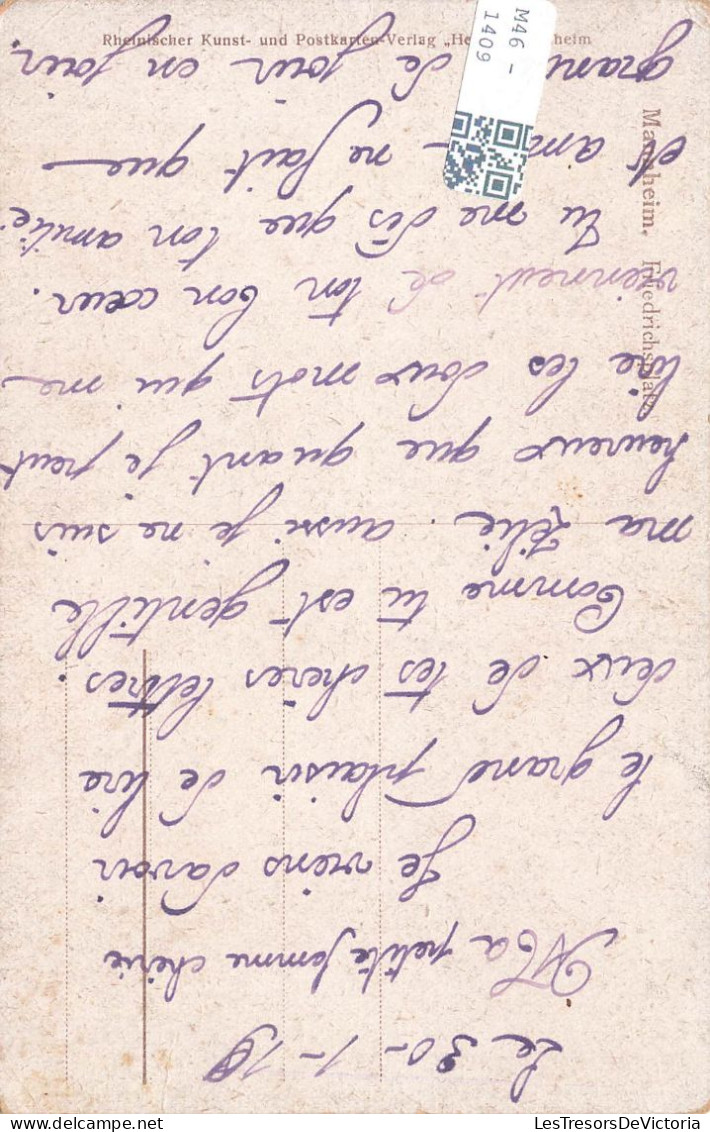 Le 30-1-19
Ma petite femme chérie
Je viens d'avoir
le grand plaisir de lire
deux de tes cheres lettres.
Comme tu est gentille
ma Zélie. aussi je ne suis
heureux que quant je peut
lire les doux mots qui me
viennent de ton bon cœur.
Tu me dis que ton amitié
et ne fait que
grandir de jour en jour.
Rheinischer Kunst- und Postkarten-Verlag
Mannheim. Friedrichsplatz
M46 -
1409
LesTresorsDeVictoria